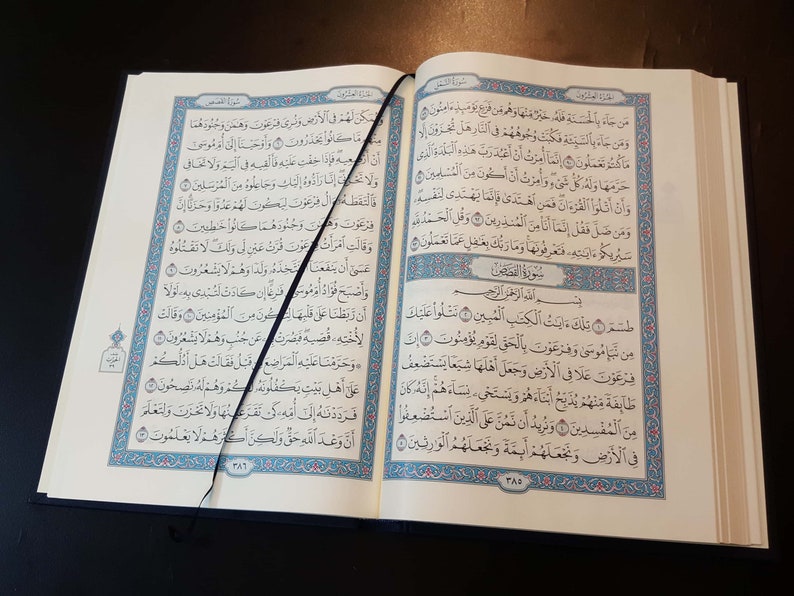 الجُزْءُ العِشْرُونَ سُورَةُ النَّمْلِ
مَن جَآءَ بِٱلْحَسَنَةِ فَلَهُۥ خَيْرٌ مِّنْهَا وَهُم مِّن فَزَعٍ يَوْمَئِذٍ ءَامِنُونَ ٨٩
وَمَن جَآءَ بِٱلسَّيِّئَةِ فَكُبَّتْ وُجُوهُهُمْ فِى ٱلنَّارِ هَلْ تُجْزَوْنَ إِلَّا
مَا كُنتُمْ تَعْمَلُونَ ٩٠ إِنَّمَآ أُمِرْتُ أَنْ أَعْبُدَ رَبَّ هَٰذِهِ ٱلْبَلْدَةِ ٱلَّذِى
حَرَّمَهَا وَلَهُۥ كُلُّ شَىْءٍ ۖ وَأُمِرْتُ أَنْ أَكُونَ مِنَ ٱلْمُسْلِمِينَ ٩١
وَأَنْ أَتْلُوَا۟ ٱلْقُرْءَانَ ۖ فَمَنِ ٱهْتَدَىٰ فَإِنَّمَا يَهْتَدِى لِنَفْسِهِۦ ۖ
وَمَن ضَلَّ فَقُلْ إِنَّمَآ أَنَا۠ مِنَ ٱلْمُنذِرِينَ ٩٢ وَقُلِ ٱلْحَمْدُ لِلَّهِ
سَيُرِيكُمْ ءَايَٰتِهِۦ فَتَعْرِفُونَهَا ۚ وَمَا رَبُّكَ بِغَٰفِلٍ عَمَّا تَعْمَلُونَ ٩٣
سُورَةُ القَصَصِ
بِسْمِ ٱللَّهِ ٱلرَّحْمَٰنِ ٱلرَّحِيمِ
طسٓمٓ ١ تِلْكَ ءَايَٰتُ ٱلْكِتَٰبِ ٱلْمُبِينِ ٢ نَتْلُوا۟ عَلَيْكَ
مِن نَّبَإِ مُوسَىٰ وَفِرْعَوْنَ بِٱلْحَقِّ لِقَوْمٍ يُؤْمِنُونَ ٣ إِنَّ
فِرْعَوْنَ عَلَا فِى ٱلْأَرْضِ وَجَعَلَ أَهْلَهَا شِيَعًا يَسْتَضْعِفُ
طَآئِفَةً مِّنْهُمْ يُذَبِّحُ أَبْنَآءَهُمْ وَيَسْتَحْىِۦ نِسَآءَهُمْ ۚ إِنَّهُۥ كَانَ
مِنَ ٱلْمُفْسِدِينَ ٤ وَنُرِيدُ أَن نَّمُنَّ عَلَى ٱلَّذِينَ ٱسْتُضْعِفُوا۟
فِى ٱلْأَرْضِ وَنَجْعَلَهُمْ أَئِمَّةً وَنَجْعَلَهُمُ ٱلْوَٰرِثِينَ ٥
٣٨٥
الجُزْءُ العِشْرُونَ سُورَةُ القَصَصِ
وَنُمَكِّنَ لَهُمْ فِى ٱلْأَرْضِ وَنُرِىَ فِرْعَوْنَ وَهَٰمَٰنَ وَجُنُودَهُمَا
مِنْهُم مَّا كَانُوا۟ يَحْذَرُونَ ٦ وَأَوْحَيْنَآ إِلَىٰٓ أُمِّ مُوسَىٰٓ
أَنْ أَرْضِعِيهِ ۖ فَإِذَا خِفْتِ عَلَيْهِ فَأَلْقِيهِ فِى ٱلْيَمِّ وَلَا تَخَافِى
وَلَا تَحْزَنِىٓ ۖ إِنَّا رَآدُّوهُ إِلَيْكِ وَجَاعِلُوهُ مِنَ ٱلْمُرْسَلِينَ ٧
فَٱلْتَقَطَهُۥٓ ءَالُ فِرْعَوْنَ لِيَكُونَ لَهُمْ عَدُوًّا وَحَزَنًا ۗ إِنَّ
فِرْعَوْنَ وَهَٰمَٰنَ وَجُنُودَهُمَا كَانُوا۟ خَٰطِـِٔينَ ٨
وَقَالَتِ ٱمْرَأَتُ فِرْعَوْنَ قُرَّتُ عَيْنٍ لِّى وَلَكَ ۖ لَا تَقْتُلُوهُ
عَسَىٰٓ أَن يَنفَعَنَآ أَوْ نَتَّخِذَهُۥ وَلَدًا وَهُمْ لَا يَشْعُرُونَ ٩
وَأَصْبَحَ فُؤَادُ أُمِّ مُوسَىٰ فَٰرِغًا ۖ إِن كَادَتْ لَتُبْدِى بِهِۦ لَوْلَآ
أَن رَّبَطْنَا عَلَىٰ قَلْبِهَا لِتَكُونَ مِنَ ٱلْمُؤْمِنِينَ ١٠ وَقَالَتْ
لِأُخْتِهِۦ قُصِّيهِ ۖ فَبَصُرَتْ بِهِۦ عَن جُنُبٍ وَهُمْ لَا يَشْعُرُونَ ١١
۞ وَحَرَّمْنَا عَلَيْهِ ٱلْمَرَاضِعَ مِن قَبْلُ فَقَالَتْ هَلْ أَدُلُّكُمْ
عَلَىٰٓ أَهْلِ بَيْتٍ يَكْفُلُونَهُۥ لَكُمْ وَهُمْ لَهُۥ نَٰصِحُونَ ١٢
فَرَدَدْنَٰهُ إِلَىٰٓ أُمِّهِۦ كَىْ تَقَرَّ عَيْنُهَا وَلَا تَحْزَنَ وَلِتَعْلَمَ
أَنَّ وَعْدَ ٱللَّهِ حَقٌّ وَلَٰكِنَّ أَكْثَرَهُمْ لَا يَعْلَمُونَ ١٣
٣٨٦
حزب
٣٩